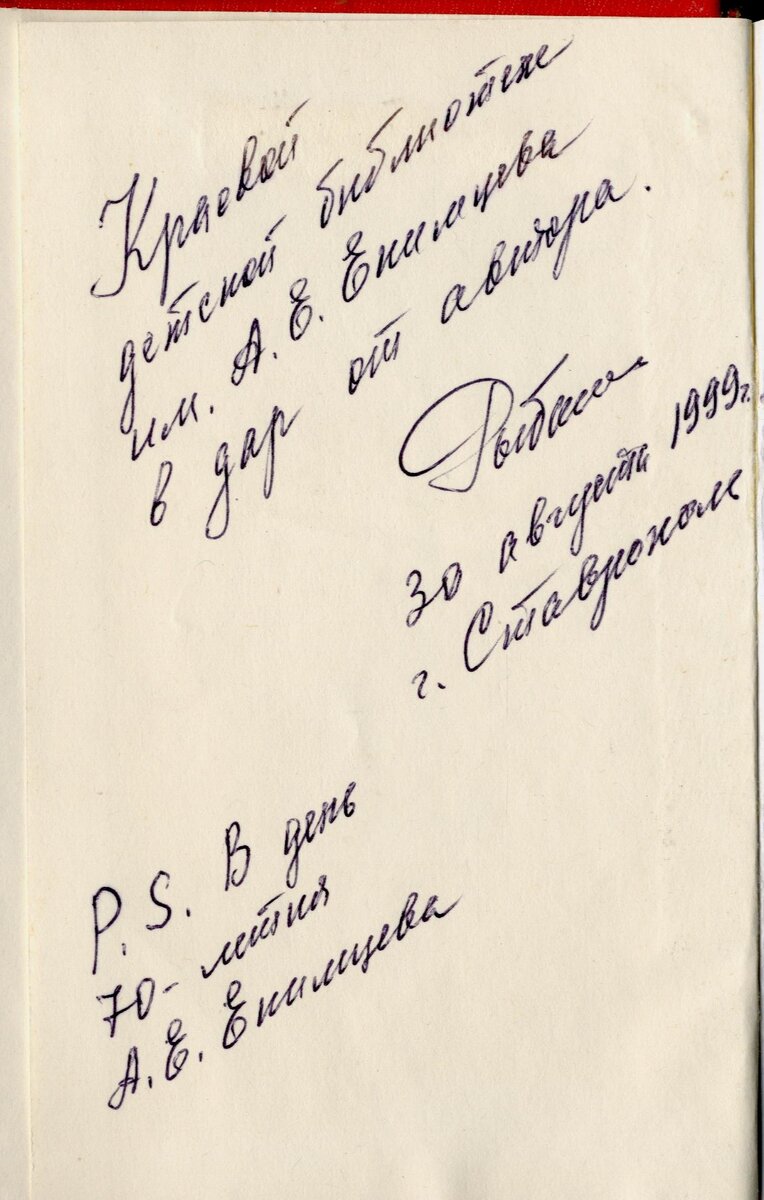 Краевой
детской библиотеке
им. А. Е. Екимцева
в дар от автора.
30 августа 1999г.
г. Ставрополь
P. S. В день
70-летия
А. Е. Екимцева